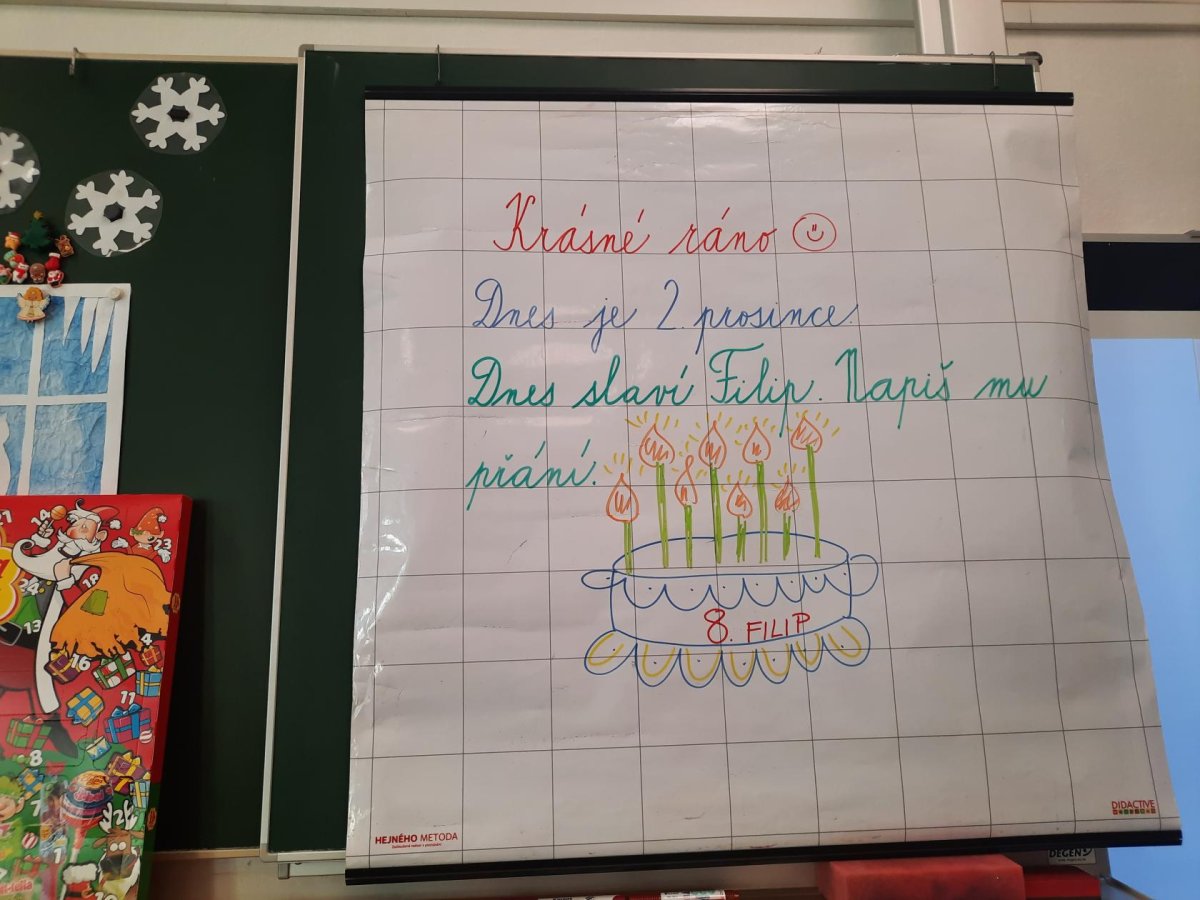 Krásné ráno
Dnes je 2. prosince.
Dnes slaví Filip. Napiš mu
přání.
8. FILIP
HEJNÉHO METODA
DIDACTIVE
21
14
23
24
18
13
4
16
11
8
7
1
2
DEGEN